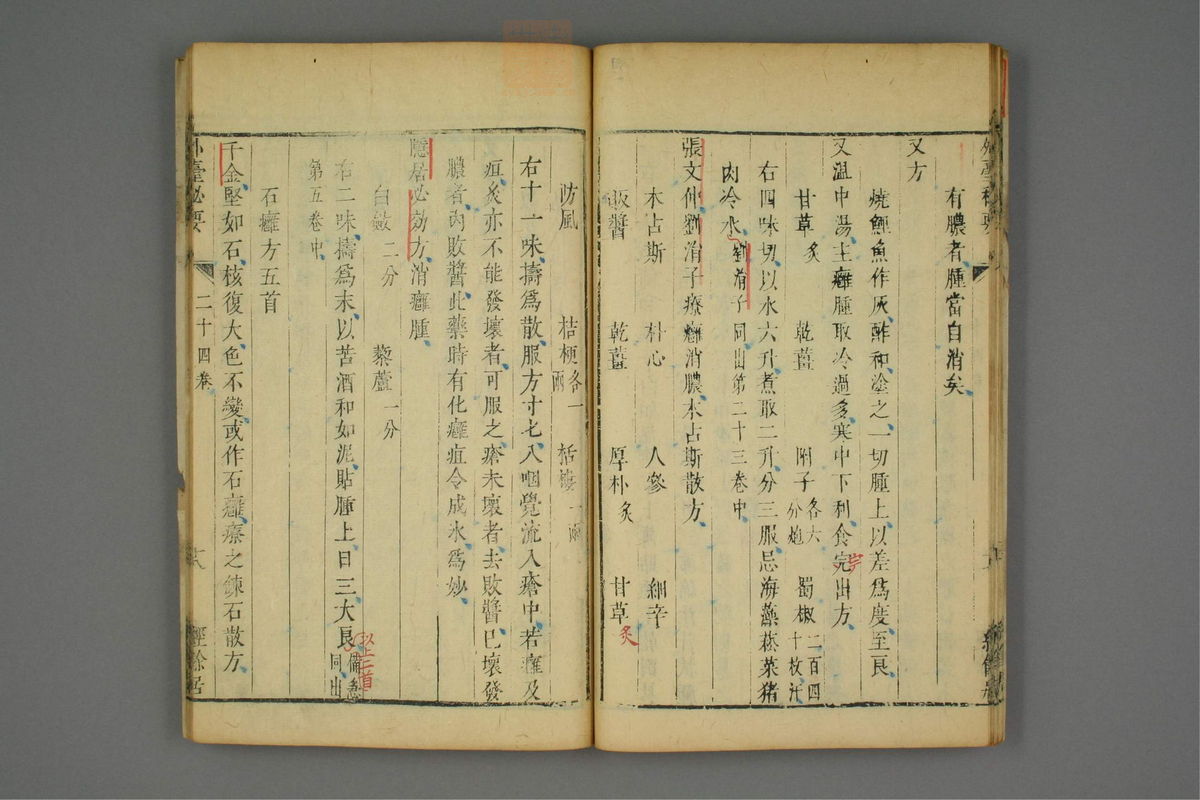 有膿者腫當自消矣
又方
燒鯉魚作灰酢和塗之一切腫上以差爲度至良
又溫中湯主癰腫取冷過多寒中下利食完出方
甘草炙 乾薑 附子各六分炮 蜀椒二百四十枚汗
右四味切以水六升煮取二升分三服忌海藻菘菜豬
肉冷水劉涓子同出第二十三卷中
張文仲劉涓子療癰消膿木占斯散方
木占斯 朴心 人參 細辛
敗醬 乾薑 厚朴炙 甘草炙
防風 桔梗各一兩 栝樓一兩
右十一味擣爲散服方寸七入咽覺流入瘡中若癰及
疽灸亦不能發壞者可服之瘡未壞者去敗醬已壞發
膿者內敗醬此藥時有化癰疽令成水爲妙
隱居必効方消癰腫
白蘞二分 藜蘆一分
右二味擣爲末以苦酒和如泥貼腫上日三大良備急同出
以上三首
第五卷中
石癰方五首
千金堅如石核復大色不變或作石癰療之鍊石散方
外臺祕要 二十四卷 十八 經餘居